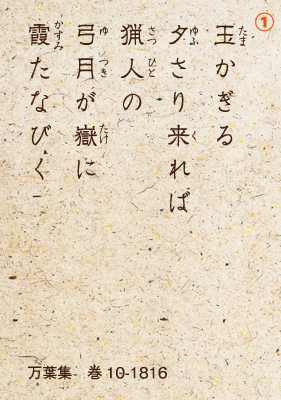 ①
玉かぎる
たま
夕さり来れば
ゆふ く
猟人の
さつ ひと
弓月が嶽に
ゆ つき たけ
霞たなびく
かすみ
万葉集 巻10-1816